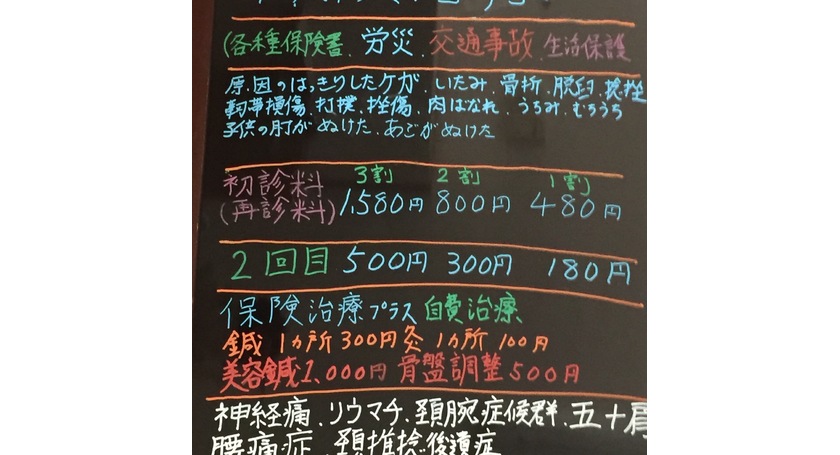 (各種保険署、労災、交通事故、生活保護
原因のはっきりしたケガ、いたみ、骨折、脱臼、捻挫
靭帯損傷、打撲、挫傷、肉ばなれ、うちみ、むちうち
子供の肘がぬけた、あごがぬけた
3割 2割 1割
初診料
(再診料) 1,580円 800円 480円
2回目 500円 300円 180円
保険治療プラス自費治療
鍼 1カ所 300円 灸 1カ所 100円
美容鍼 1,000円 骨盤調整 500円
神経痛、リウマチ、頚腕症候群、五十肩
腰痛症、頚椎捻後遺症